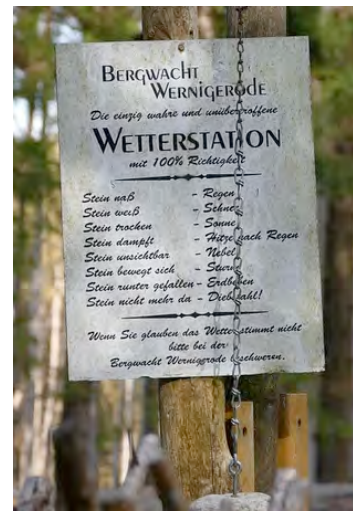 BERGWACHT
WERNIGERODE
Die einzig wahre und unübertroffene
WETTERSTATION
mit 100% Richtigkeit
Stein naß - Regen
Stein weiß - Schnee
Stein trocken - Sonne
Stein dampft - Hitze nach Regen
Stein unsichtbar - Nebel
Stein bewegt sich - Sturm
Stein runter gefallen - Erdbeben
Stein nicht mehr da - Diebstahl!
Wenn Sie glauben das Wetter stimmt nicht
bitte bei der
Bergwacht Wernigerode beschweren.